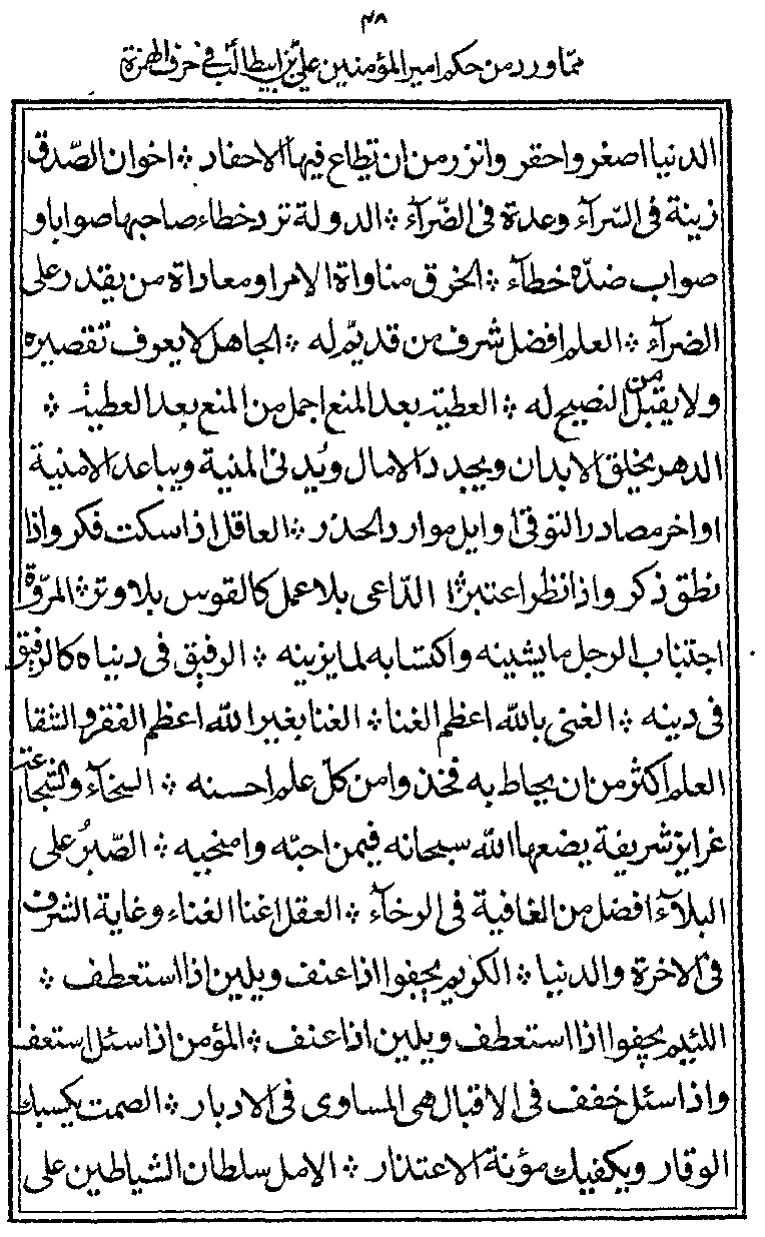 ٤٨
مما ورد من حكم امير المؤمنين علي بن ابيطالب في حرف الهمزة
الدنيا اصغر واحقر وانزر من ان تطاع فيها الاحقاد ⁘ اخوان الصّدق
زينة في السّرآء وعدة في الضّرآء ⁘ الدولة ترد خطاء صاحبها صوابا و
صواب ضدّه خطآء ⁘ الخرق مناواة الامرا ومعاداة من يقدر على
الضرآء ⁘ العلم افضل شرف من قديّم له ⁘ الجاهل لا يعرف تقصيره
ولا يقبل من النصيح له ⁘ العطية بعد المنع اجمل من المنع بعد العطية ⁘
الدهر يخلق الابدان ويجدد الامال ويُدني المنية ويباعد الامنية
اواخر مصادر التوقي اوايل موارد الحذر ⁘ العاقل اذا سكت فكر واذا
نطق ذكر واذا نظر اعتبر ⁘ الدّاعي بلا عمل كالقوس بلا وتر ⁘ المرّوة
اجتناب الرجل ما يشينه واكتسابه لما يزينه ⁘ الرفيق في دنياه كالرفيق
في دينه ⁘ الغنى بالله اعظم الغنا ⁘ الغنا بغير الله اعظم الفقر والشقا
العلم اكثر من ان يحاط به فخذوا من كلّ علم احسنه ⁘ السخآء والشجاعة
غرايز شريفة يضعها الله سبحانه فيمن احبّه وامتحنه ⁘ الصّبرُ على
البلآء افضل من العافية في الرخآء ⁘ العقل اغنا الغناء وغاية الشرف
في الاخرة والدنيا ⁘ الكريم يجفوا اذا عنف ويلين اذا استعطف ⁘
اللئيم يجفوا اذا استعطف ويلين اذا عنف ⁘ المؤمن اذا سئل استعف
واذا سئل خفف في الاقبال هي المساوى في الادبار ⁘ الصمت يكسبك
الوقار ويكفيك مؤنة الاعتذار ⁘ الامل سلطان الشياطين على